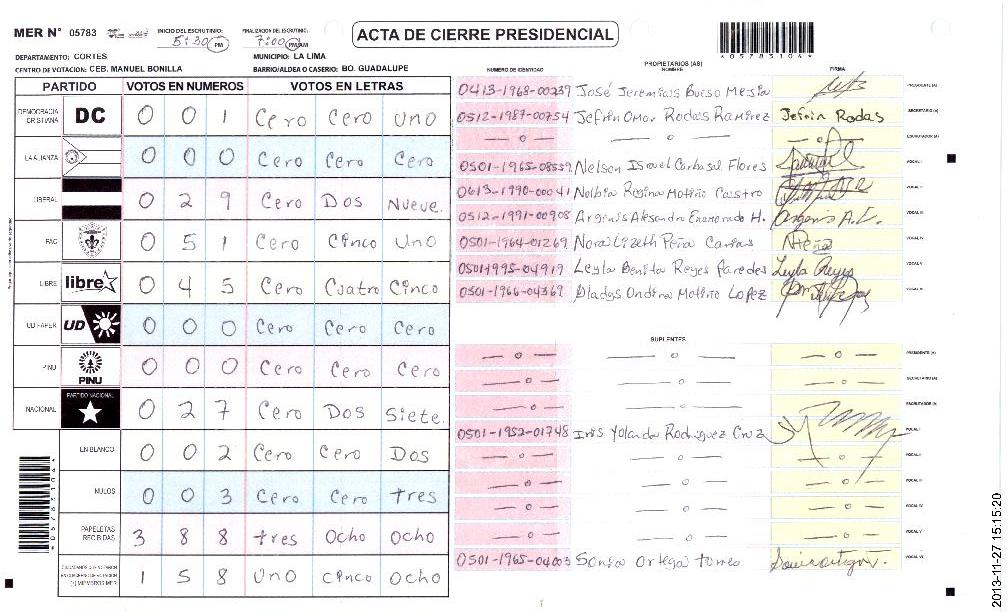 MER N° 05783
INICIO DEL ESCRUTINIO: 5:30 PM
FINALIZACION DEL ESCRUTINIO: 7:00 PM
ACTA DE CIERRE PRESIDENCIAL
*05783104*
DEPARTAMENTO: CORTES
MUNICIPIO: LA LIMA
CENTRO DE VOTACION: CEB. MANUEL BONILLA
BARRIO/ALDEA O CASERIO: BO. GUADALUPE
PARTIDO VOTOS EN NUMEROS VOTOS EN LETRAS
DEMOCRACIA CRISTIANA DC 0 0 1 Cero Cero Uno
LA ALIANZA 0 0 0 Cero Cero Cero
LIBERAL 0 2 9 Cero Dos Nueve.
PAC 0 5 1 Cero Cinco Uno
LIBRE libre 0 4 5 Cero Cuatro Cinco
UD FAPER UD 0 0 0 Cero Cero Cero
PINU PINU 0 0 0 Cero Cero Cero
NACIONAL PARTIDO NACIONAL 0 2 7 Cero Dos Siete.
EN BLANCO 0 0 2 Cero Cero Dos
NULOS 0 0 3 Cero Cero tres
PAPELETAS RECIBIDAS 3 8 8 tres Ocho Ocho
CIUDADANOS QUE VOTARON EN CUADERNO DE VOTACION (+) MIEMBROS MER 1 5 8 Uno Cinco Ocho
PROPIETARIOS (AS)
NUMERO DE IDENTIDAD NOMBRE FIRMA
0413-1968-00239 José Jeremias Bueso Mesia PRESIDENTE (A)
0512-1987-00754 Jefrin Omar Rodas Ramirez Jefrin Rodas SECRETARIO (A)
— o — — o — — o — ESCRUTADOR (A)
0501-1965-08559 Nelson Israel Carbasal Flores VOCAL I
0613-1990-00041 Nolbia Regina Motiño Castro VOCAL II
0512-1991-00908 Argenis Alesandro Enamorado H. Argenis A.E. VOCAL III
0501-1964-01269 Nora Lizeth Peña Carias NPeña VOCAL IV
0501-1995-04919 Leyla Benita Reyes Paredes Leyla Reyes VOCAL V
0501-1966-04369 Gladys Ondina Motiño Lopez VOCAL VI
SUPLENTES
— o — — o — — o — PRESIDENTE (A)
— o — — o — — o — SECRETARIO (A)
— o — — o — — o — ESCRUTADOR (A)
0501-1952-01748 Iris Yolanda Rodriguez Cruz VOCAL I
— o — — o — — o — VOCAL II
— o — — o — — o — VOCAL III
— o — — o — — o — VOCAL IV
— o — — o — — o — VOCAL V
0501-1965-04003 Sonia Ortega Torres VOCAL VI
2013-11-27 15:15:20